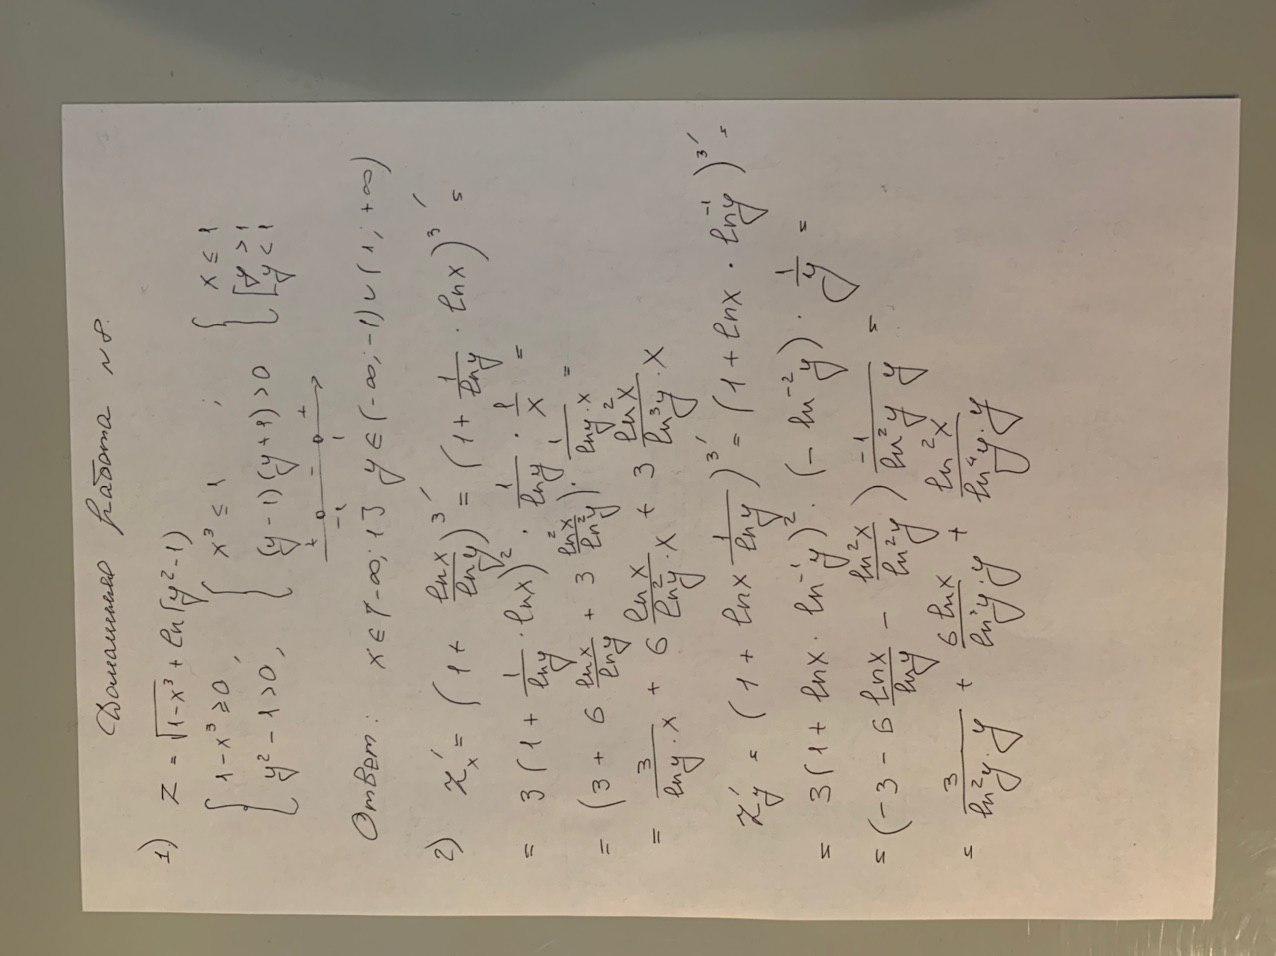 Домашняя работа №8.
1) z = √(1-x³) + ln(y²-1)
{ 1-x³ ≥ 0, { x³ ≤ 1 ; { x ≤ 1
y² - 1 > 0, (y-1)(y+1) > 0 [ y > 1
y < 1
+ - +
-1 1
Ответ: x ∈ (-∞; 1] y ∈ (-∞; -1) ∪ (1; +∞)
2) z'ₓ = (1 + lnx/lny)³' = (1 + 1/lny · lnx)³' =
= 3(1 + 1/lny · lnx)² · 1/lny · 1/x =
= (3 + 6 lnx/lny + 3 ln²x/ln²y) · 1/(lny·x) =
= 3/(lny·x) + 6 lnx/(ln²y·x) + 3 ln²x/(ln³y·x)
z'y = (1 + lnx 1/lny)³' = (1 + lnx · ln⁻¹y)³' =
= 3(1 + lnx · ln⁻¹y)² · (- ln⁻²y) · 1/y =
= (-3 - 6 lnx/lny - ln²x/ln²y) -1/(ln²y y) =
= 3/(ln²y·y) + 6 lnx/(ln³y·y) + ln²x/(ln⁴y·y)